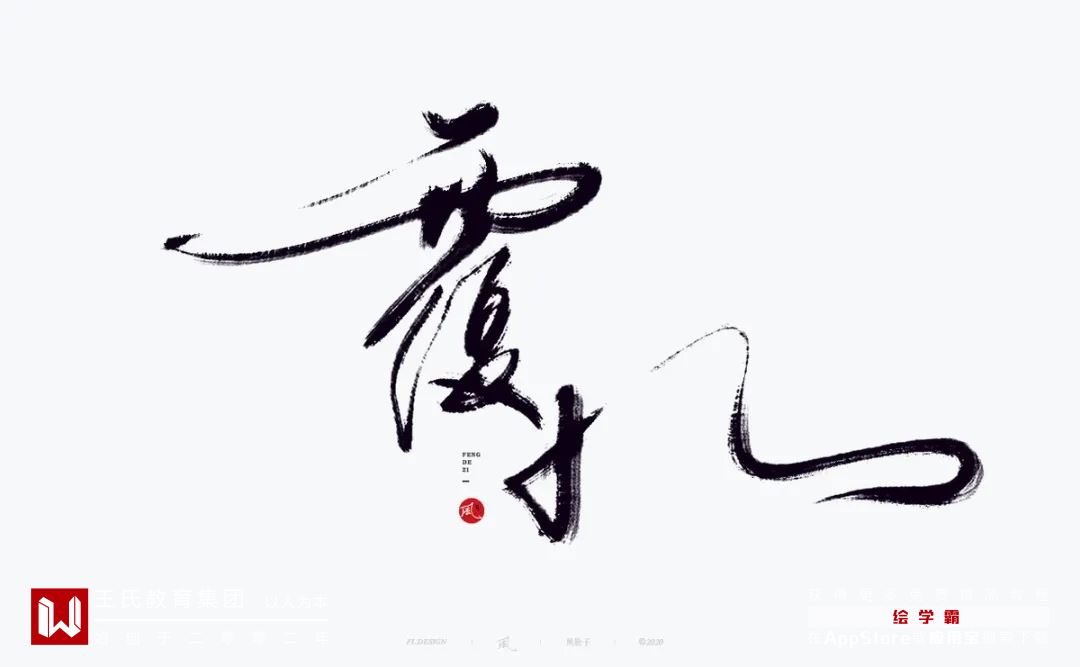 覆水
FENG
DE
ZI
風
王氏教育集团 以人为本
始创于二零零二年
FLDESIGN
風
©2020
获得更多免费精品教程
绘学霸
在AppStore或应用宝搜索下载